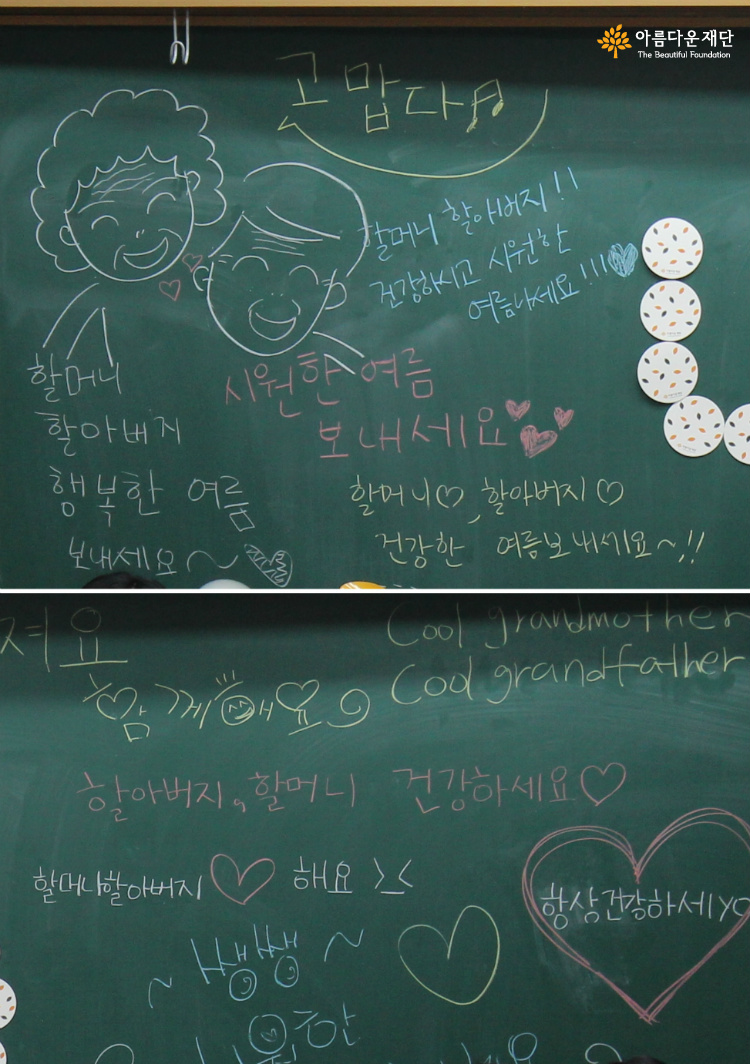 아름다운재단
The Beautiful Foundation
고맙다
할머니 할아버지!!
건강하시고 시원한
여름나세요!!!
할머니
할아버지
행복한 여름
보내세요~
시원한 여름
보내세요
할머니♡, 할아버지♡
건강한 여름보내세요~!!
요
Cool grandmother
Cool grandfather
함께해요
할아버지, 할머니 건강하세요♡
할머니할아버지♡해요 >_<
항상건강하세yo
~쌩쌩~
시원한